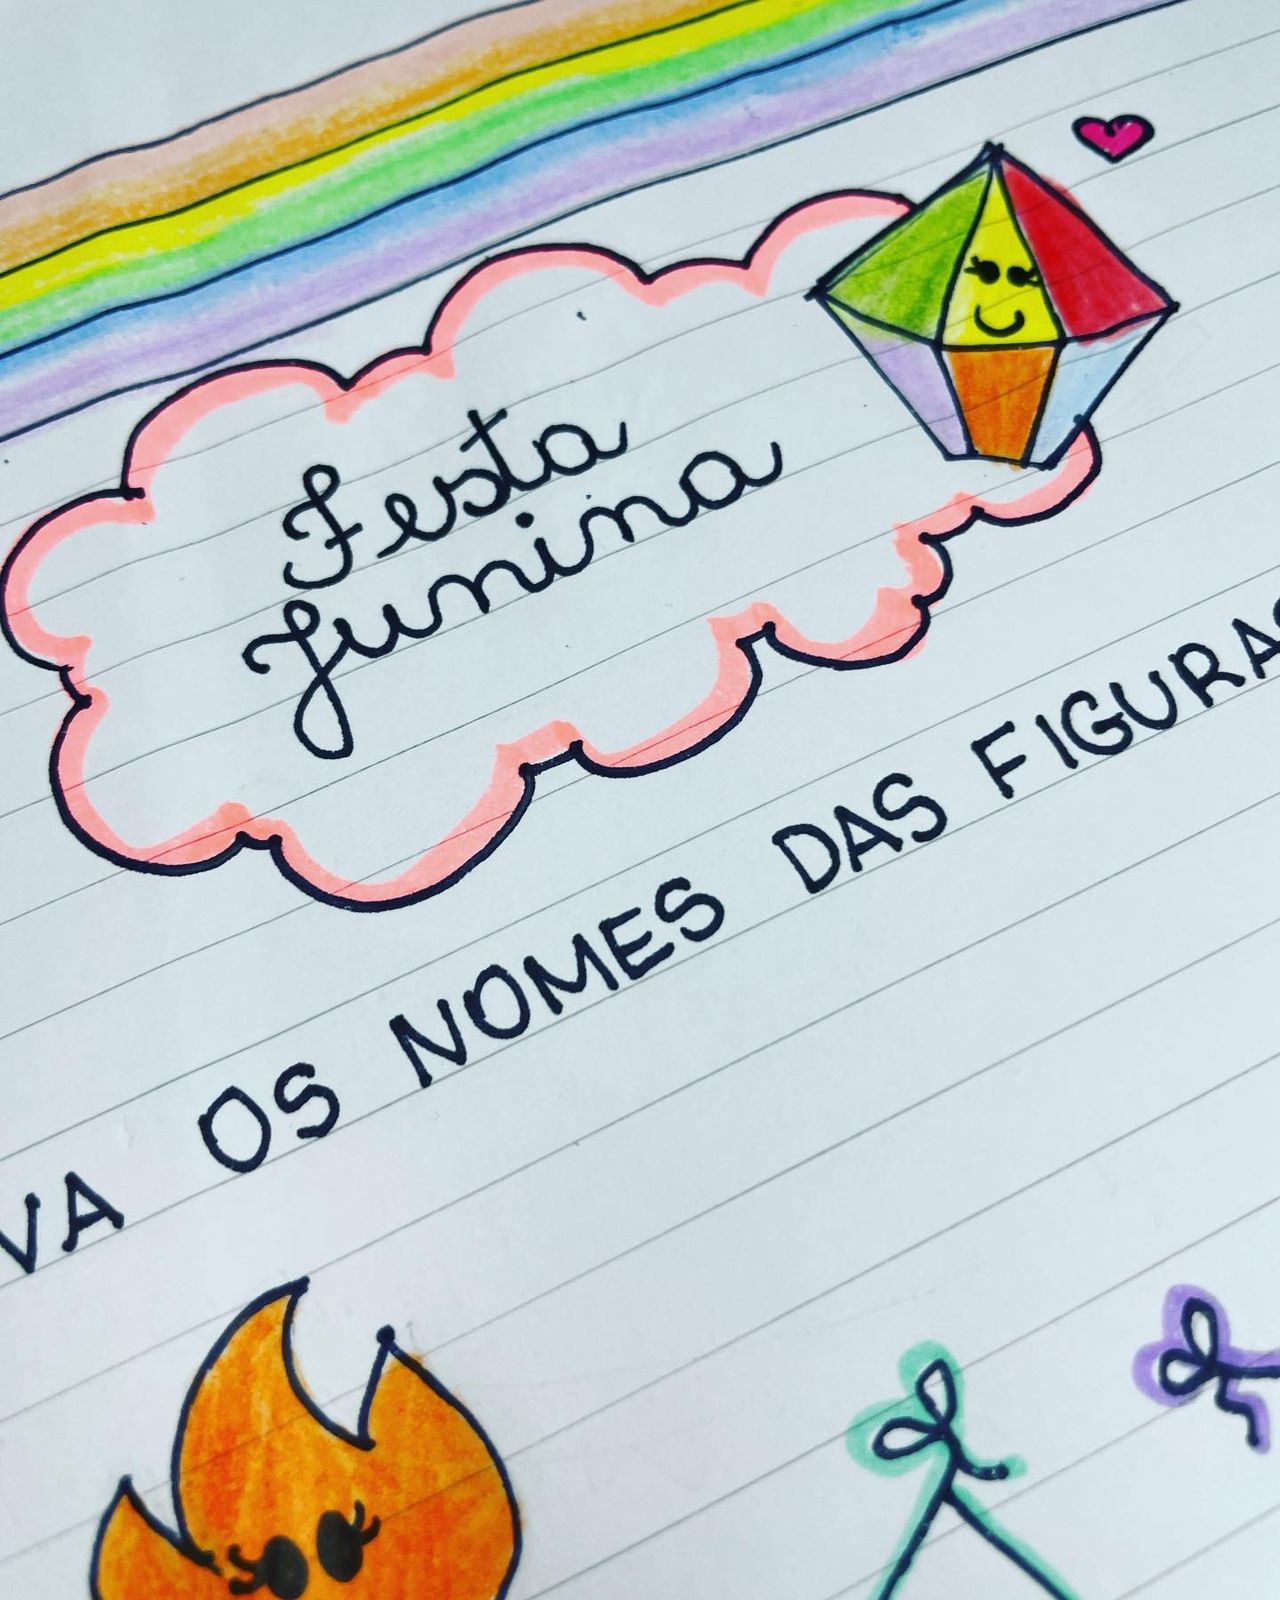 Festa
Junina
VA OS NOMES DAS FIGURAS